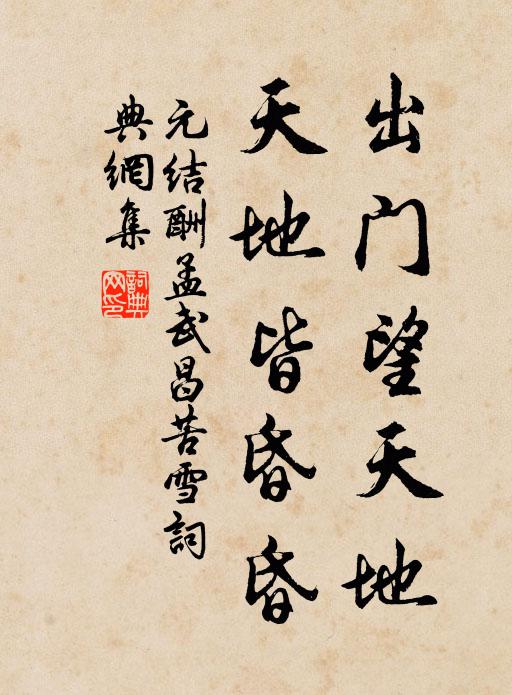 出门望天地
天地皆昏昏
元结酬孟武昌苦雪詞
典網集
詞典网印